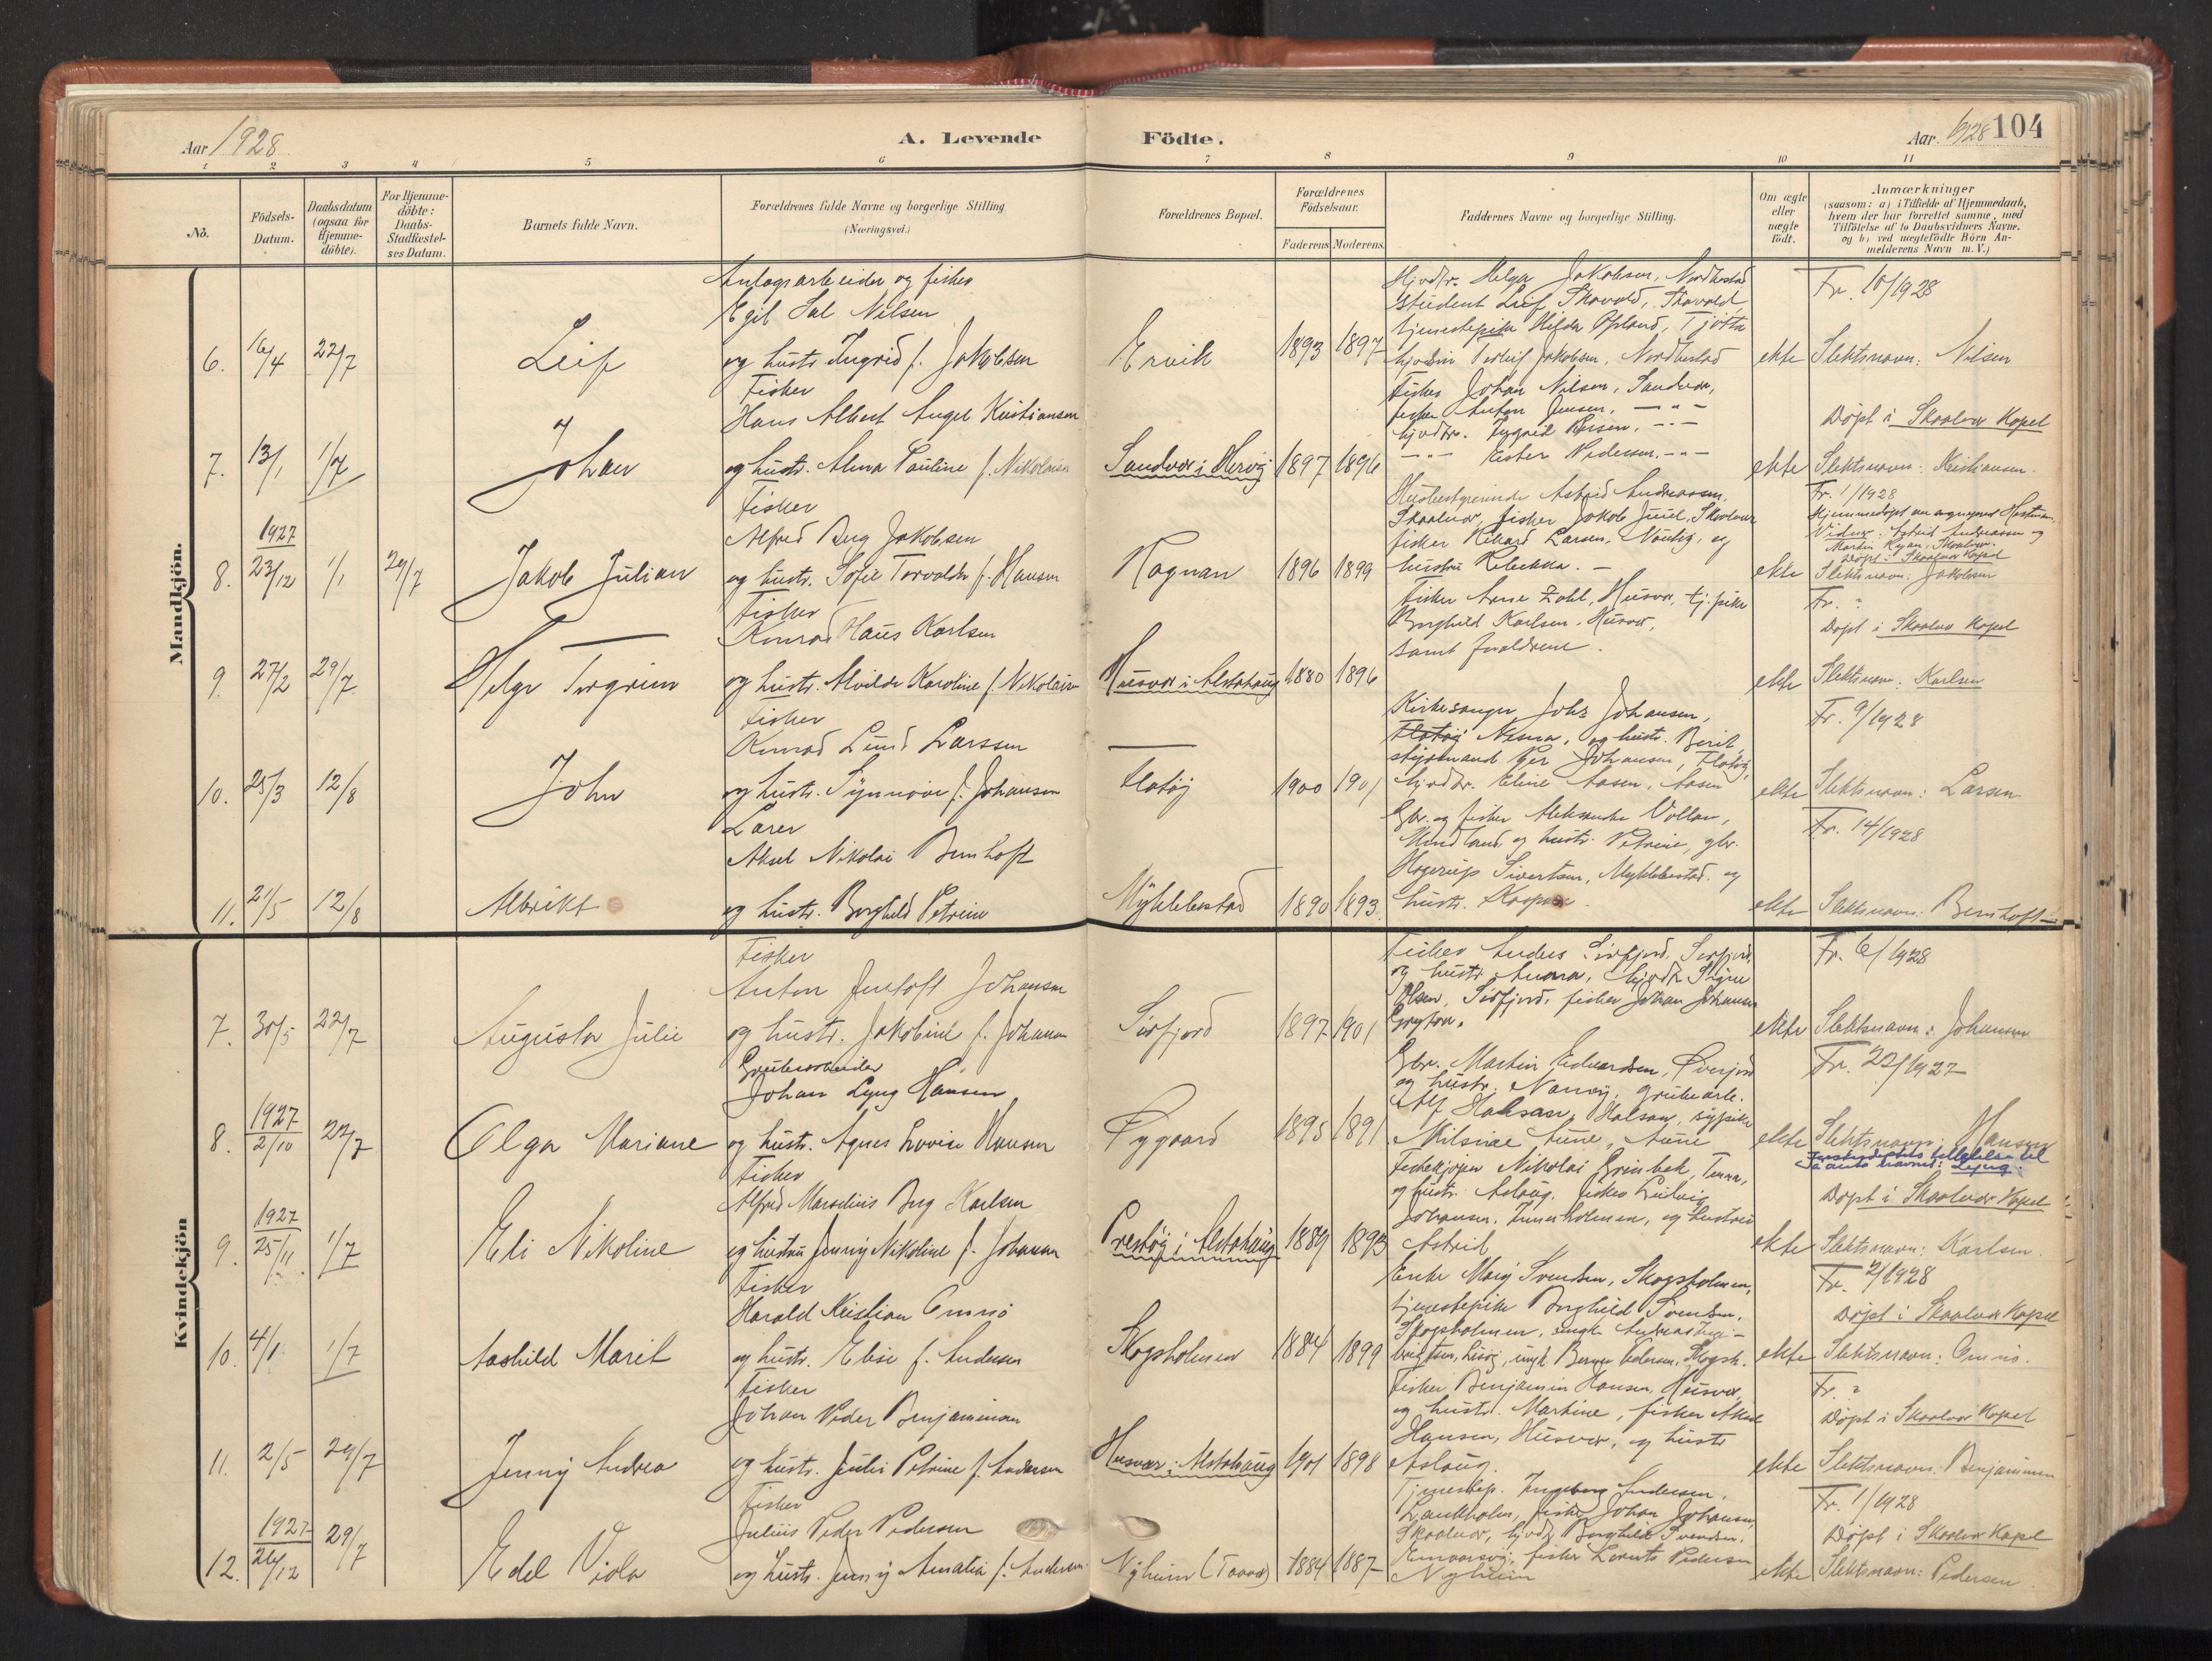 Aar 1928
A. Levende
Födte.
Aar. 1928 104
1 2 3 4 5 6 7 8 9 10 11
No.
Födsels-
Datum.
Daabsdatum
(ogsaa for
Hjemme-
döbte).
For Hjemme-
döbte:
Daabs-
Stadfæstel-
ses Datum.
Barnets fulde Navn.
Forældrenes fulde Navne og borgerlige Stilling
(Næringsvei.)
Forældrenes Bopæl.
Forældrenes
Födselsaar.
Faderens Moderens
Faddernes Navne og borgerlige Stilling.
Om ægte
eller
uægte
födt.
Anmærkninger
(saasom: a) i Tilfælde af Hjemmedaab,
hvem der har forrettet samme, med
Tilföielse af to Daabsvidners Navne.
og b) ved uægtefödte Börn An-
melderens Navn m. V.)
Mandkjön.
Anlegsarbeider og fisker
Egil Nilsen
6. 16/4 22/7 Leif og hustr. Ingrid f. Jakobsen Ervik 1893 1897
Hjvdtr. Helga Jakobsen, Nordbostad
student Leif Skavold, Skavold,
tjenestepike Hilda Opland, Tjötta
Jakobsen, Nordbostad
ekte
Fr. 10/1928
Slektsnavn: Nilsen
Fisker
Hans Albert Angel Kristiansen
7. 13/1 1/7 Johan og hustr. Alma Pauline f. Nikolaisen Sandvær i Heröj 1897 1896
Fisker Johan Nilsen, Sandvær,
fisker Anton Jensen, — " —
hjvdtr.
— " — Ester Pedersen, — " —
ekte
Döpt i Skaalvær Kapel
Slektsnavn: Kristiansen.
Fisker
Alfred Berg Jakobsen
8. 1927 23/12 1/1 29/7 Jakob Julian og hustr. Sofie Torvalda f. Hansen 1896 1899
Husbestyrerinde Astrid Andreassen,
Skaalvær, fisker Jakob Juul, Skaalvær
fisker Rikard Larsen, og
hustru Rebekka. —
ekte
Fr. 1/1928
Vidner: Astrid Andreassen og
Martin Skaalvær.
Döpt i Skaalvær Kapel
Slektsnavn: Jakobsen
Fisker
Konrad Hans Karlsen
9. 27/2 29/7 Helge Torgrim og hustr. Alvilde Karoline f. Nikolaisen Husvær i Alstahaug 1880 1896
Fisker Arne Zahl, Husvær, tj. pike
Borghild Karlsen, Husvær,
samt forældrene.
ekte
Fr. ?
Döpt i Skaalvær Kapel
Slektsnavn: Karlsen
Fisker
Konrad Lund Larssen
10. 25/3 12/8 John og hustr. Synnøve f. Johansen Flatöj 1900 1901
Kirkesanger Johs Johansen,
Flatöj Nesna, og hustr. Berit,
styrmand Per Johansen, Flatöj,
hjvdtr. Eline Aasen, Aasen
ekte
Fr. 9/1928
Slektsnavn: Larsen
Lærer
Aksel Nikolai Bernhoft
11. 21/5 12/8 Albrikt og hustr. Borghild Petrine Myklebostad 1890 1893.
Gbr. og fisker Aleksander Vollan,
Mindland, og hustr. Petrine, gbr.
Hagerup Sivertsen, Myklebostad, og
hustr. Kaspara.
ekte
Fr. 14/1928
Slektsnavn: Bernhoft
Kvindekjön
Fisker
Anton Jentoft Johansen
7. 30/5 22/7 Augusta Julie og hustr. Jakobine f. Johansen Sörfjord 1897 1901
Fisker Anders Sörfjord, Sörfjord,
og hustr. Anna, hjvdtr. Signe
Olsen, Sörfjord, fisker Johan Johansen
ekte
Fr. 6/1928
Slektsnavn: Johansen
Grubearbeider
Johan Lyng Hansen
8. 1927 2/10 22/7 Olga Mariane og hustr. Agnes Lovise Hansen Öygaard 1895 1891
Gbr. Martin Edvardsen,
og hustr. Nanny, grubearb.
Alf Halsan, Halsan, sypike
Aune, Aune
ekte
Fr. 22/1927
Slektsnavn: Hansen
tillatelse til
å anta navnet: Lyng.
Fisker
Alfred Marselius Berg Karlsen
9. 1927 25/11 1/7 Eli Nikoline og hustru Jenny Nikoline f. Johansen Prestöj i Alstahaug 1889 1893
Fiskekjöper Nikolai Grönbek, Tenna,
og hustr. Aslaug, fisker Ludvig
Johansen, Innerholmen, og hustru
Astrid
ekte
Döpt i Skaalvær Kapel
Slektsnavn: Karlsen.
Fisker
Harald Kristian Omnö
10. 4/1 1/7 Aashild Marit og hustr. Elise f. Andersen Skogsholmen 1884 1899
Enke Marij Svendsen, Skogsholmen,
tjenestepike Borghild Svendsen,
Skogsholmen, ungk.
ungk. Pedersen, Skogsh.
ekte
Fr. 2/1928
Döpt i Skaalvær Kapel
Slektsnavn: Omnö.
Fisker
Johan Peder Benjaminsen
11. 2/5 29/7 Jenny Andrea og hustr. Julie Petrine f. Andersen Husvær i Alstahaug 1901 1898
Fisker Benjamin Hansen, Husvær,
og hustr. Martine, fisker Aksel
Hansen, Husvær, og hustr
Aslaug.
ekte
Fr. ?
Döpt i Skaalvær Kapel
Slektsnavn: Benjaminsen
Fisker
Julius Peder Pedersen
12. 1927 26/12 29/7 Edel Viola og hustr. Jenny Amalia f. Andersen Nyheim (Tranö) 1884 1887
Tjenestep. Ingeborg Andersen,
Lankholm, fisker Johan Johansen,
Skaalvær, hjvdtr. Borghild Svendsen,
fisker Lorents Pedersen
Nyheim
ekte
Fr. 1/1928
Döpt i Skaalvær Kapel
Slektsnavn: Pedersen.